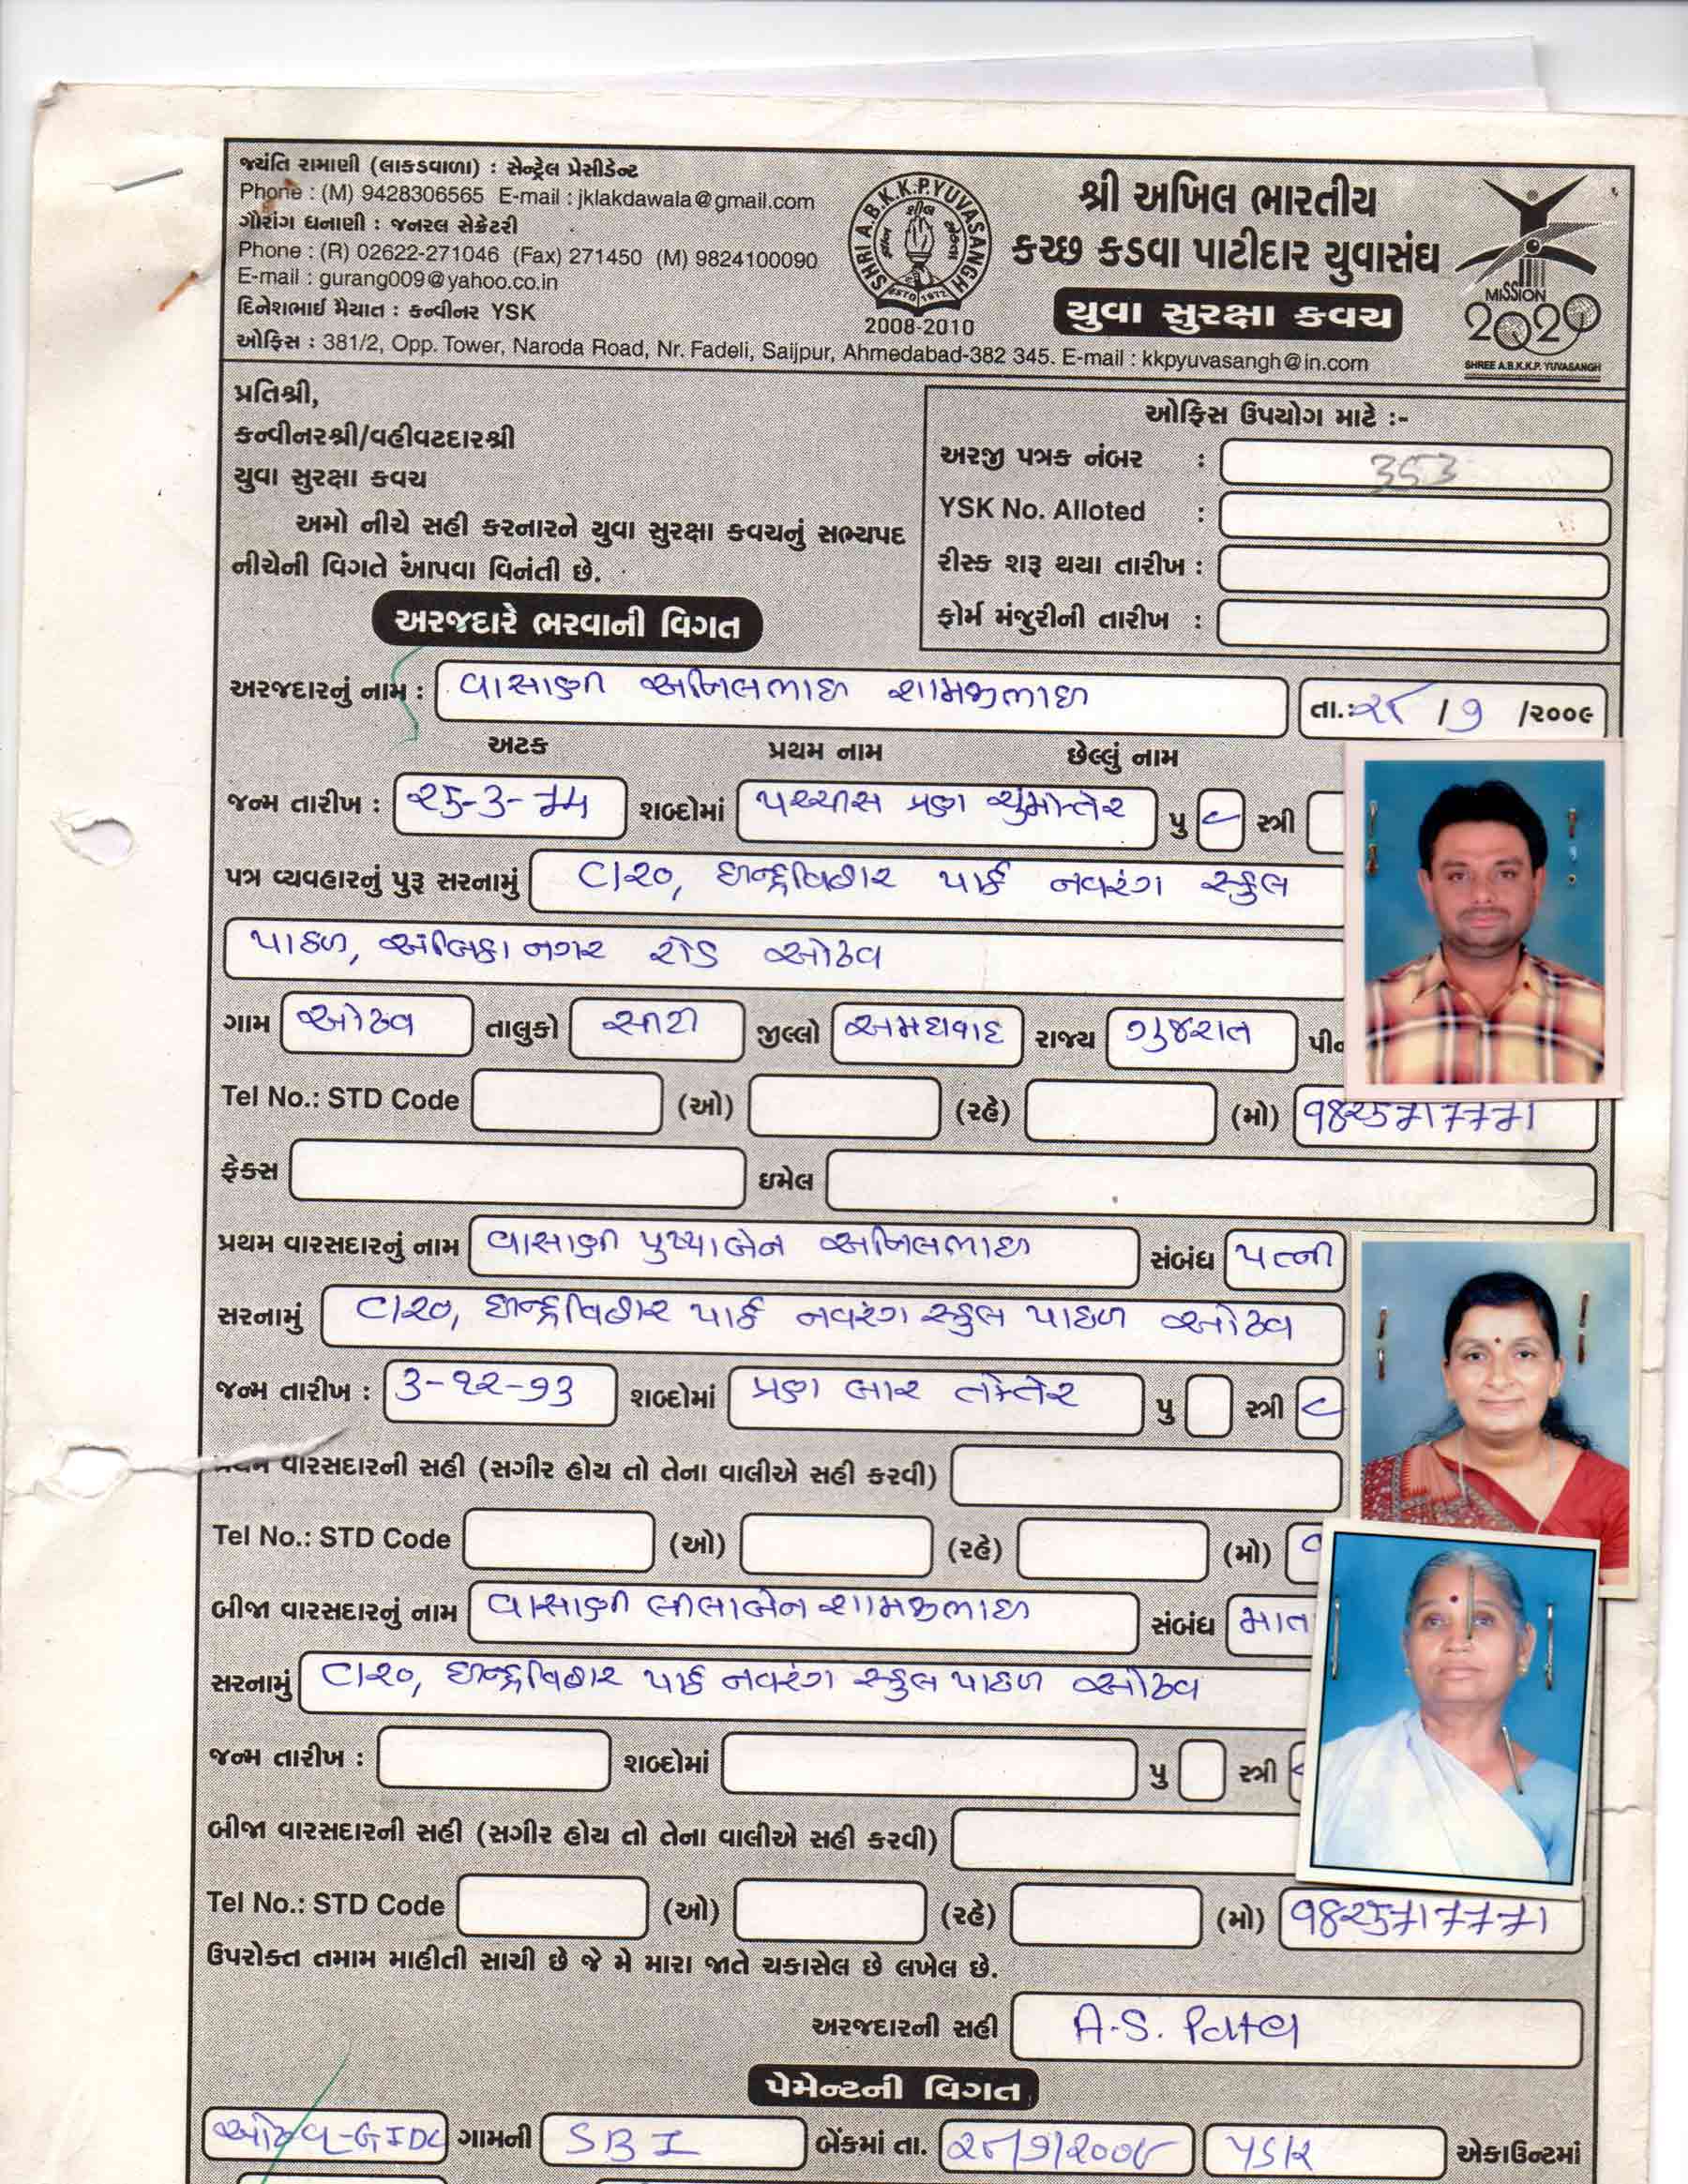 જયંતિ રામાણી (લાકડવાળા) : સેન્ટ્રેલ પ્રેસીડેન્ટ
Phone : (M) 9428306565 E-mail : jklakdawala@gmail.com
ગૌરાંગ ધનાણી : જનરલ સેક્રેટરી
Phone : (R) 02622-271046 (Fax) 271450 (M) 9824100090
E-mail : gurang009@yahoo.co.in
દિનેશભાઈ મૈયાત : કન્વીનર YSK
SHRI A.B.K.K.P. YUVASANGH
ESTD 1972
2008-2010
શ્રી અખિલ ભારતીય
કચ્છ કડવા પાટીદાર યુવાસંઘ
યુવા સુરક્ષા કવચ
MISSION
2020
SHREE A.B.K.K.P. YUVASANGH
ઓફિસ : 381/2, Opp. Tower, Naroda Road, Nr. Fadeli, Saijpur, Ahmedabad-382 345. E-mail : kkpyuvasangh@in.com
પ્રતિશ્રી,
કન્વીનરશ્રી/વહીવટદારશ્રી
યુવા સુરક્ષા કવચ
અમો નીચે સહી કરનારને યુવા સુરક્ષા કવચનું સભ્યપદ
નીચેની વિગતે આંપવા વિનંતી છે.
ઓફિસ ઉપયોગ માટે :-
અરજી પત્રક નંબર : 353
YSK No. Alloted :
રીસ્ક શરૂ થયા તારીખ :
ફોર્મ મંજુરીની તારીખ :
અરજદારે ભરવાની વિગત
અરજદારનું નામ : વાસાણી અનિલભાઇ શામજીભાઇ તા.: /૭ /૨૦૦૯
અટક પ્રથમ નામ છેલ્લું નામ
જન્મ તારીખ : ૨૫-૩-૭૪ શબ્દોમાં પચ્ચીસ ત્રણ ચુમોત્તેર પુ ✓ સ્ત્રી
પત્ર વ્યવહારનું પુરૂ સરનામું C/૨૦, ઇન્દ્રવિહાર પાર્ક નવરંગ સ્કુલ
પાછળ, અંબિકા નગર રોડ ઓઢવ
ગામ ઓઢવ તાલુકો સીટી જીલ્લો અમદાવાદ રાજ્ય ગુજરાત
Tel No.: STD Code (ઓ) (રહે) (મો) 9825717771
ફેકસ ઇમેલ
પ્રથમ વારસદારનું નામ વાસાણી પુષ્પાબેન અનિલભાઇ સંબંધ પત્ની
સરનામું C/૨૦, ઇન્દ્રવિહાર પાર્ક નવરંગ સ્કુલ પાછળ ઓઢવ
જન્મ તારીખ : ૩-૧૨-૭૩ શબ્દોમાં ત્રણ બાર તોત્તેર પુ સ્ત્રી ✓
પ્રથમ વારસદારની સહી (સગીર હોય તો તેના વાલીએ સહી કરવી)
Tel No.: STD Code (ઓ) (રહે) (મો)
બીજા વારસદારનું નામ વાસાણી લીલાબેન શામજીભાઇ સંબંધ માતા
સરનામું C/૨૦, ઇન્દ્રવિહાર પાર્ક નવરંગ સ્કુલ પાછળ ઓઢવ
જન્મ તારીખ : શબ્દોમાં પુ સ્ત્રી
બીજા વારસદારની સહી (સગીર હોય તો તેના વાલીએ સહી કરવી)
Tel No.: STD Code (ઓ) (રહે) (મો) 9825717771
ઉપરોક્ત તમામ માહીતી સાચી છે જે મે મારા જાતે ચકાસેલ છે લખેલ છે.
અરજદારની સહી A.S. Patel
પેમેન્ટની વિગત
ઓઢવ-GIDC ગામની SBI બેંકમાં તા. એકાઉન્ટમાં